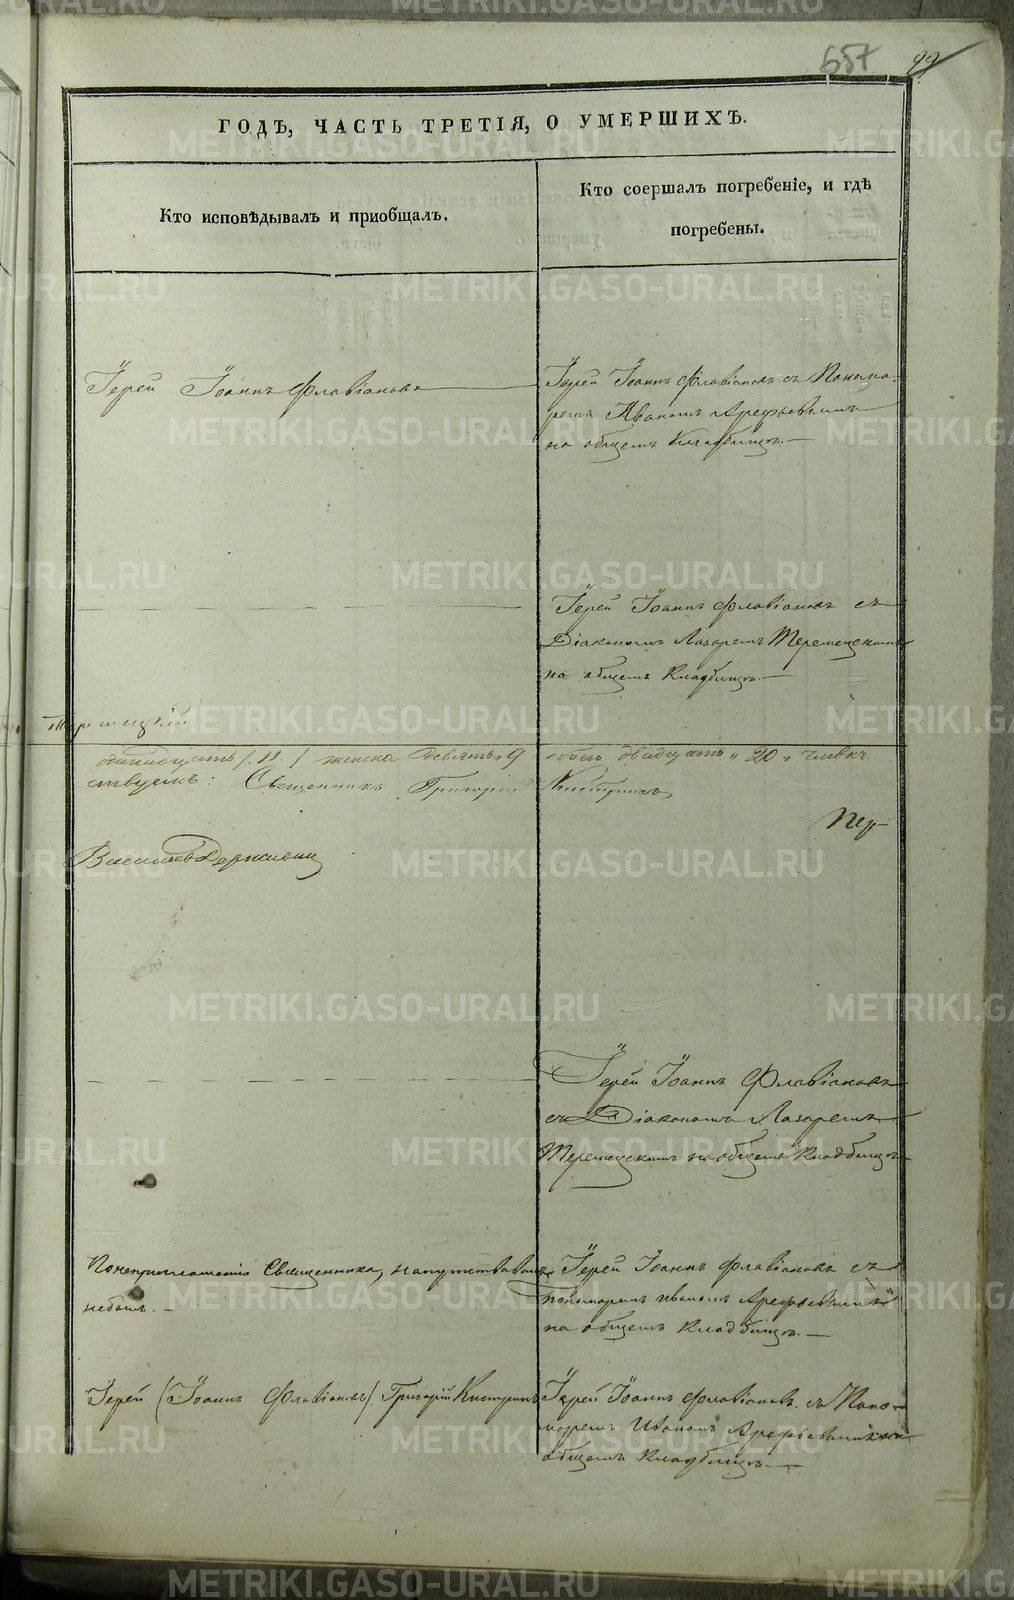 657 99
ГОДЪ, ЧАСТЬ ТРЕТІЯ, О УМЕРШИХЪ.
Кто исповѣдывалъ и приобщалъ.
Кто соершалъ погребеніе, и гдѣ
погребены.
Іерей Іоаннъ Флавіановъ
Іерей Іоаннъ Флавіановъ съ Понома-
ремъ Иваномъ Арефьевымъ
на общемъ Кладбищѣ.
Іерей Іоаннъ Флавіановъ съ
Діакономъ Лазаремъ Теремецкимъ
на общемъ Кладбищѣ.
одиннадцать /11./ женска девять 9 обоего двадцать „20„ человкъ
Священникъ Григорій
Пер-
Василій
Іерей Іоаннъ Флавіановъ
съ Діакономъ Лазаремъ
Теремецкимъ на общемъ Кладбищѣ
По неприглашенію Священника, напутствованъ
небылъ.
Іерей Іоаннъ Флавіановъ съ
пономаремъ Иваномъ Арефьевымъ
на общемъ Кладбищѣ.
Іерей (Іоаннъ Флавіановъ) Григорій
Іерей Іоаннъ Флавіановъ съ Поно-
маремъ Иваномъ Арефьевымъ на
общемъ Кладбищѣ
METRIKI.GASO-URAL.RU